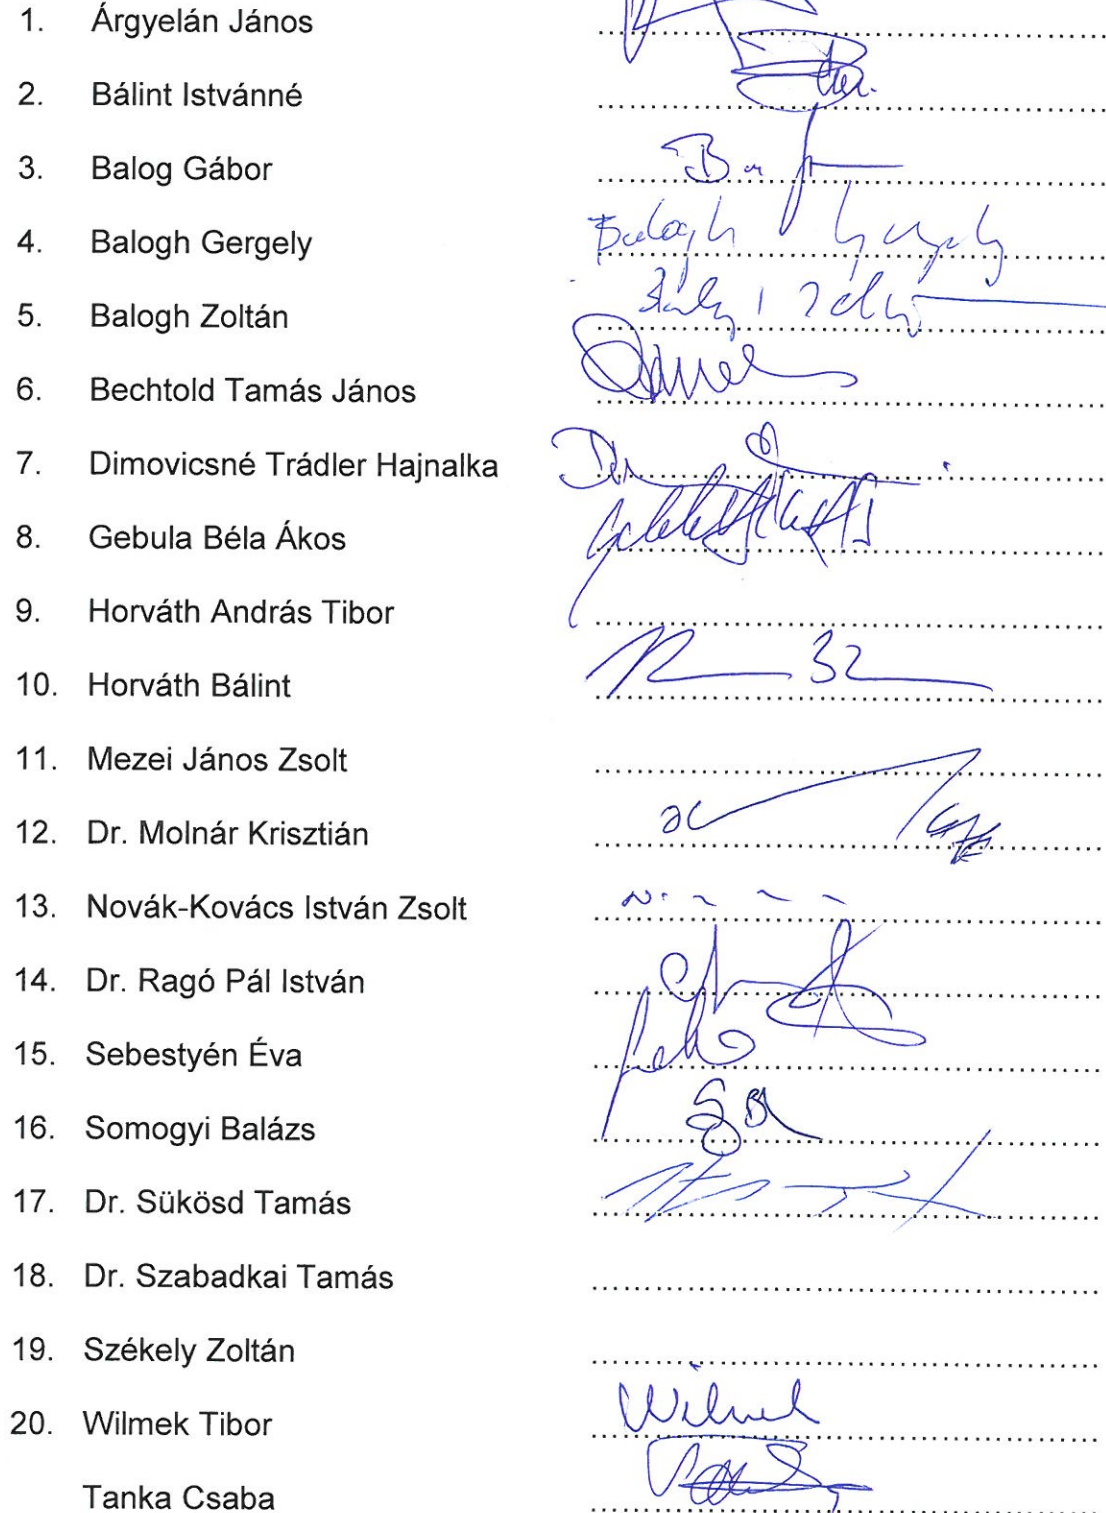 1. Árgyelán János
2. Bálint Istvánné
3. Balog Gábor
4. Balogh Gergely Balogh Gergely
5. Balogh Zoltán
6. Bechtold Tamás János
7. Dimovicsné Trádler Hajnalka
8. Gebula Béla Ákos
9. Horváth András Tibor
10. Horváth Bálint
11. Mezei János Zsolt
12. Dr. Molnár Krisztián
13. Novák-Kovács István Zsolt
14. Dr. Ragó Pál István
15. Sebestyén Éva
16. Somogyi Balázs
17. Dr. Sükösd Tamás
18. Dr. Szabadkai Tamás
19. Székely Zoltán
20. Wilmek Tibor Wilmek
Tanka Csaba